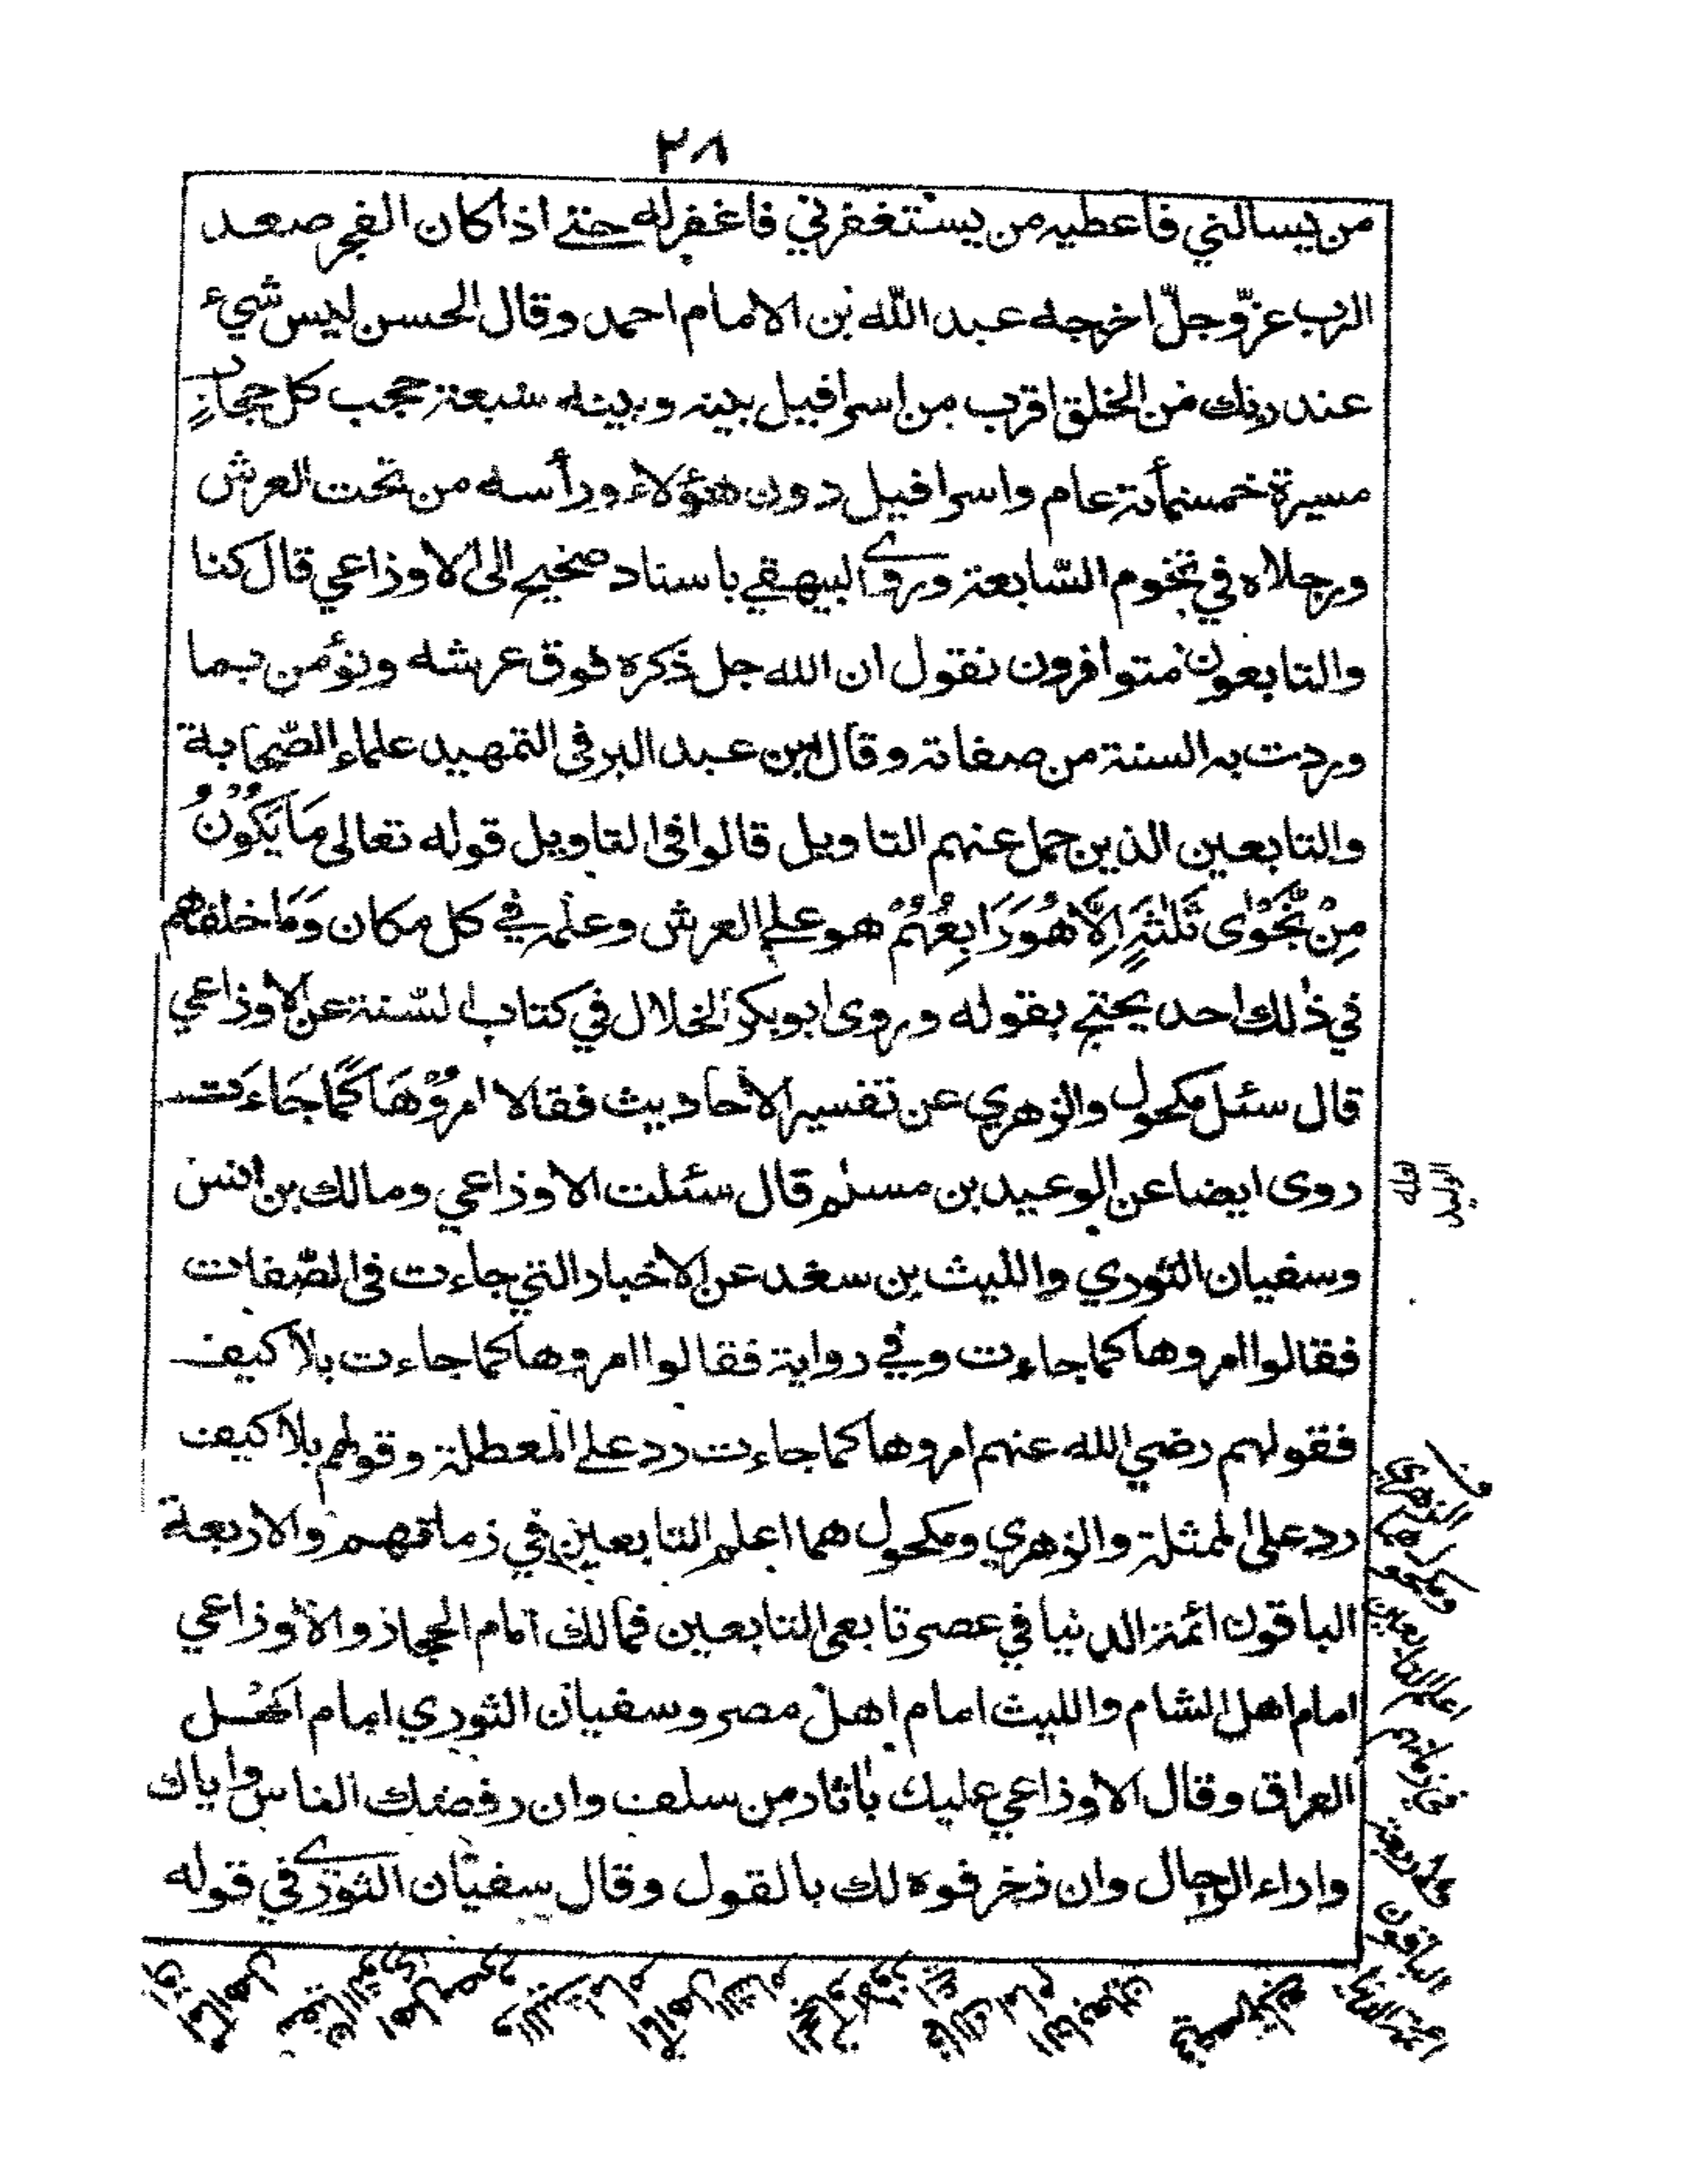 ٢٨
من يسالني فاعطيه من يستغفرني فاغفرله حتى اذا كان الفجر صعد
الرب عزّ وجلّ اخرجه عبد اللّه بن الامام احمد وقال الحسن ليس شيء
عند ربك من الخلق اقرب من اسرافيل بينه وبينه سبعة حجب كل حجاب
مسيرة خمسمأئة عام واسرافيل دون هؤلاء ورأسه من تحت العرش
ورجلاه في تخوم السّابعة وروى البيهقي باسناد صحيح الى الاوزاعي قال كنا
والتابعون متوافرون نقول ان الله جل ذكره فوق عرشه ونؤمن بما
وردت به السنة من صفاته وقال ابن عبد البر فى التمهيد علماء الصّحابة
والتابعين الذين حمل عنهم التاويل قالوا فى التاويل قوله تعالى مَا يَكُوْنُ
مِنْ نَّجْوٰى ثَلٰثَةٍ اِلَّا هُوَ رَابِعُهُمْ هو على العرش وعلمه في كل مكان وَمَا خلفهم
في ذٰلك احد يحتج بقوله وروى ابوبكر الخلال في كتاب السّنة عن الاوزاعي
قال سئل مكحول والزهري عن تفسير الاحاديث فقالا امرُّوْهَا كَمَا جَاءَت
روى ايضا عن الوعيد بن مسلم قال سئلت الاوزاعي ومالك بن انس
قوله الوليد
وسفيان الثوري والليث بن سعد عن الاخبار التي جاءت فى الصّفات
فقالوا امروها كما جاءت وفي رواية فقالوا امروها كما جاءت بلا كيف
فقولهم رضي الله عنهم امروها كما جاءت رد على المعطلة وقولهم بلا كيف
رد على الممثلة والزهري ومكحول هما اعلم التابعين في زمانهم والاربعة
الباقون ائمة الدنيا في عصر تابعى التابعين فمالك امام الحجاز والاوزاعي
امام اهل الشام والليث امام اهل مصر وسفيان الثوري امام اهل
العراق وقال الاوزاعي عليك باثار من سلف وان رفضك الناس واياك
واراء الرجال وان زخرفوه لك بالقول وقال سفيان الثوري في قوله
الزهري
ومكحول
اعلم التابعين
في زمانهم
الباقون